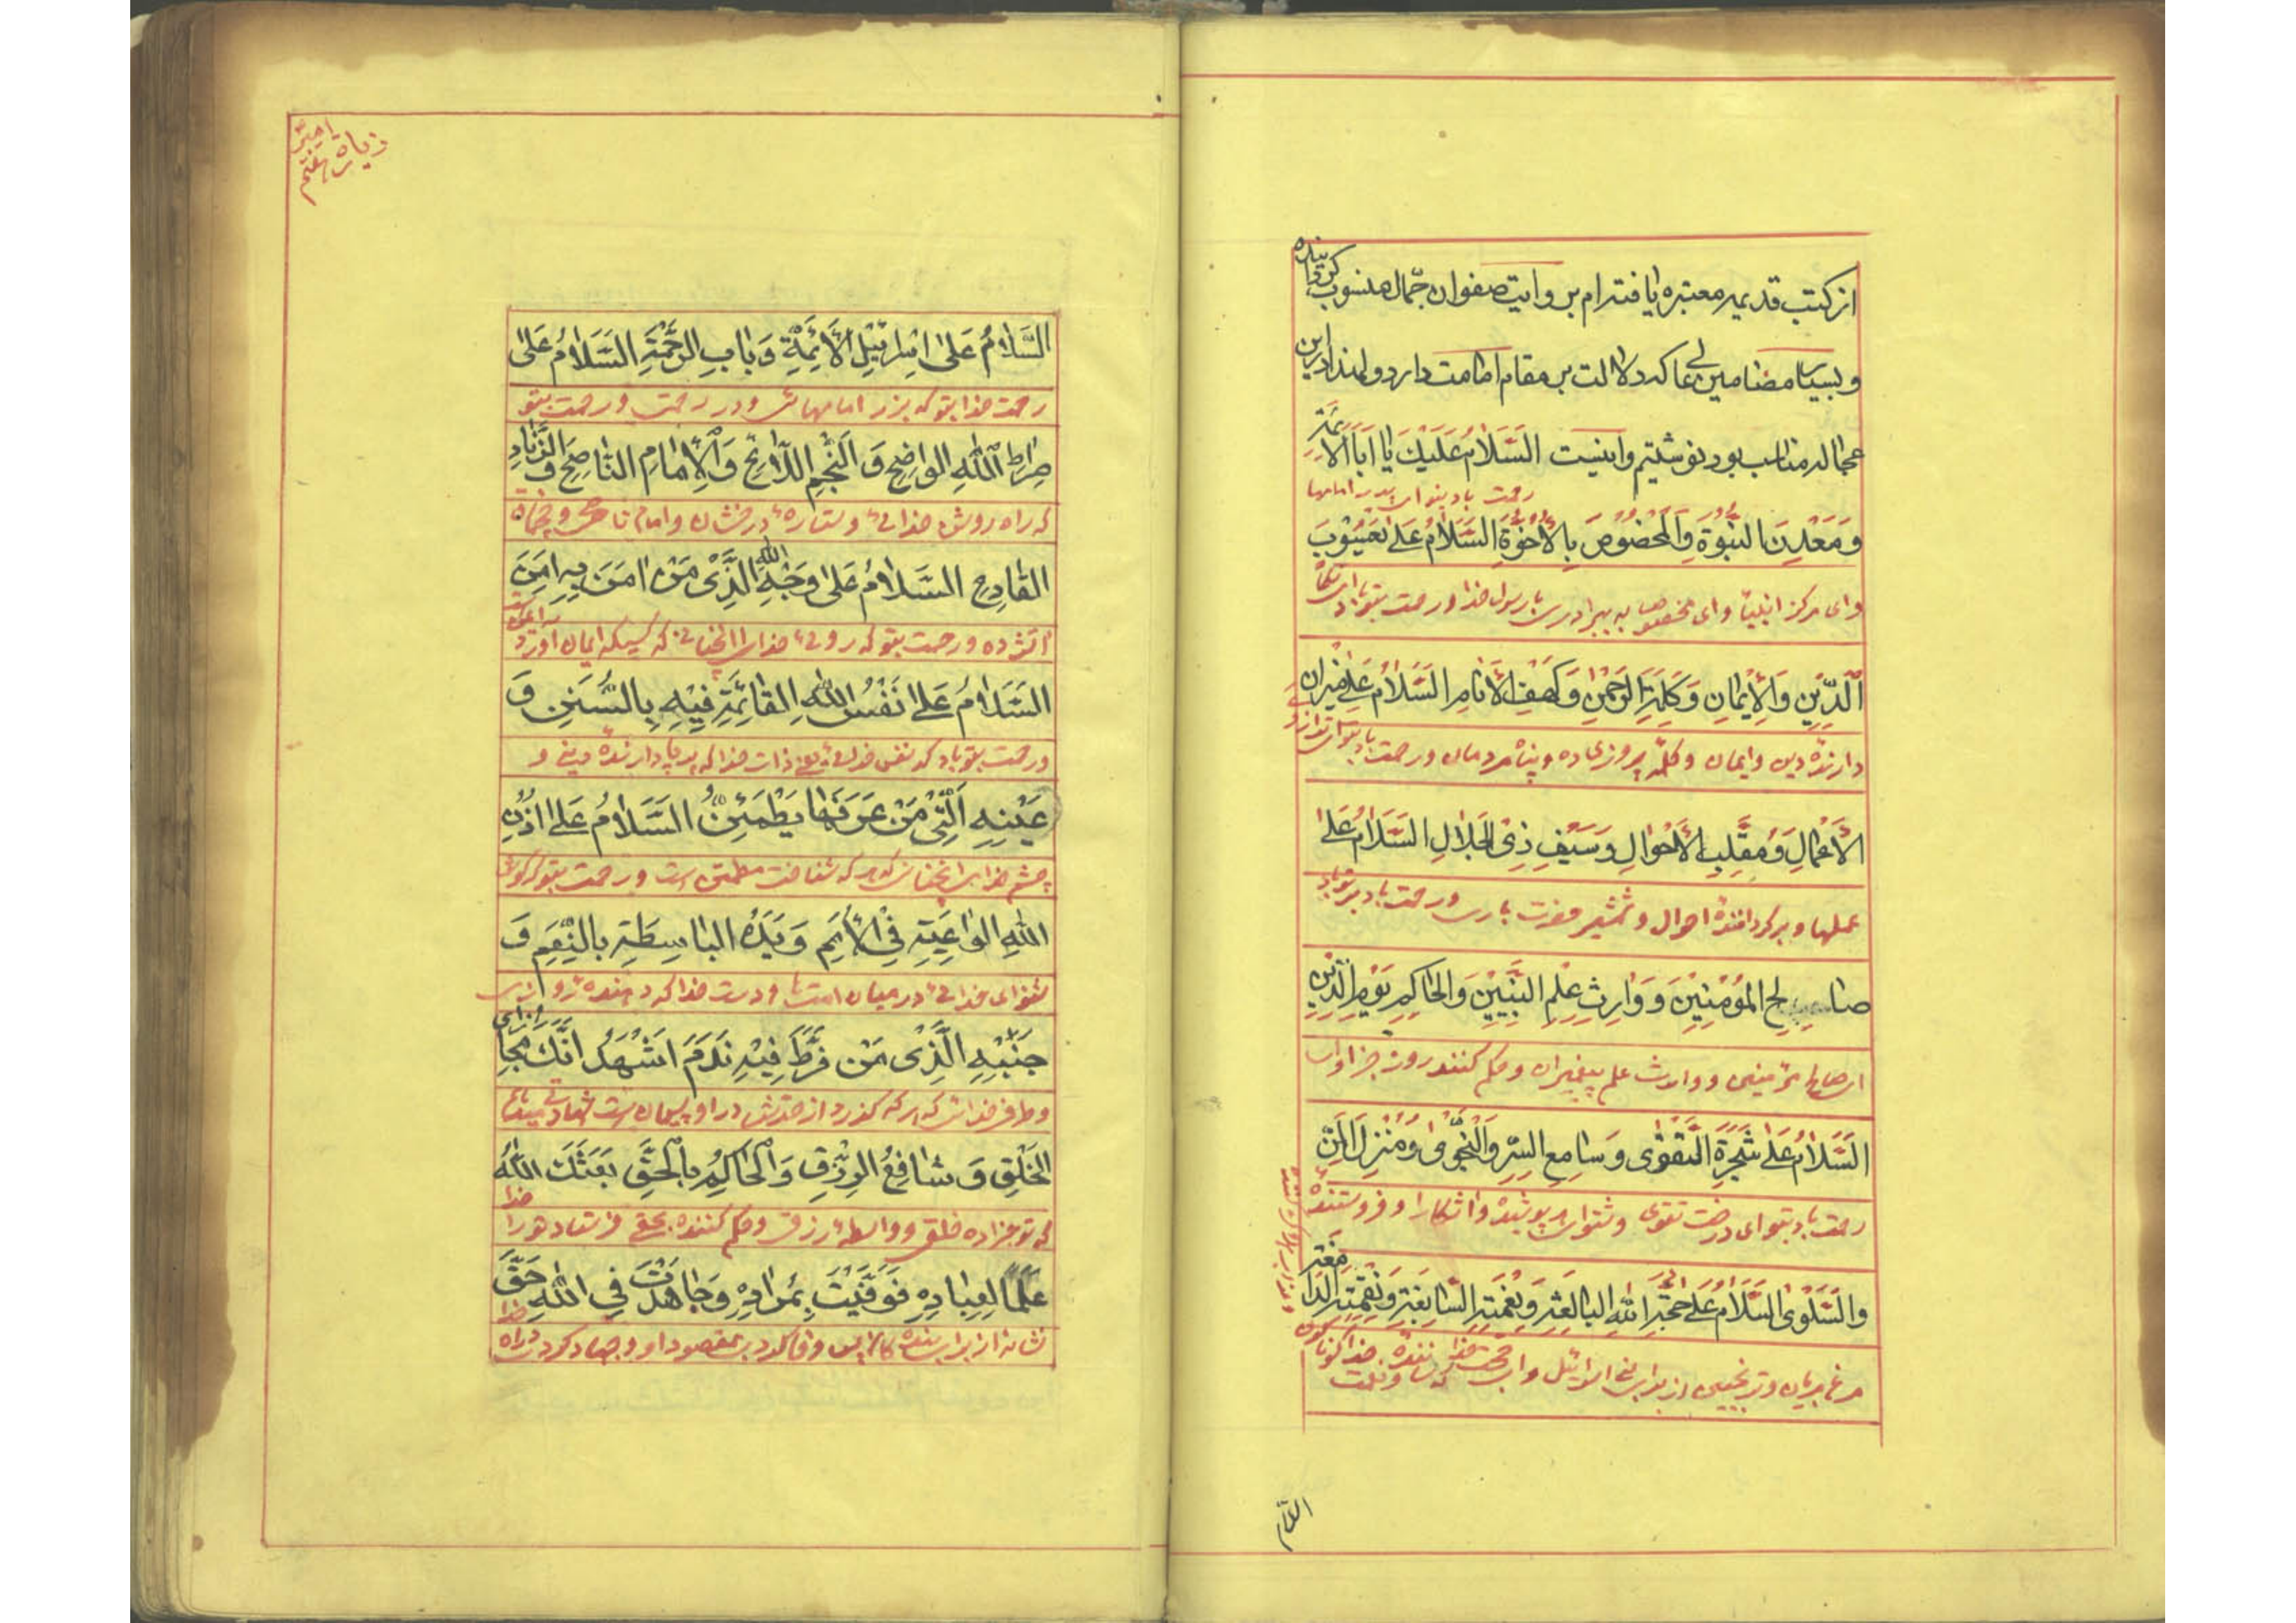 از کتب قدیمه معتبره یافته‌ام بروایت صفوان جمّال منسوب
و بسیار مضامین عا که دلالت بر مقام امامت دارد و لهذا در این
عجاله مناسب بود نوشتیم و اینست السَّلامُ عَلَیْكَ یا اَبَا الاَئِمَّةِ
رحمت باد بتو ای پدر امامها
وَ مَعْدِنَ النُّبُوَّةِ وَ الْمَخْصُوصَ بِالْاُخُوَّةِ السَّلامُ عَلی یَعْسُوبِ
و ای مرکز و ای مخصوص به برادری رسول خدا و رحمت بتو باد ای
الدِّینِ وَ الْاِیمانِ وَ کَلِمَةِ الرَّحْمنِ وَ کَهْفِ الْاَنامِ السَّلامُ عَلی مِیزانِ
دارنده دین و ایمان و کلمه و پناه مردمان و رحمت
الْاَعْمالِ وَ مُقَلِّبِ الْاَحْوالِ وَ سَیْفِ ذِی الْجَلالِ السَّلامُ عَلی
عملها و برگرداننده احوال و شمشیر حضرت باری و رحمت باد بر تو باد
صالِحِ الْمُؤْمِنِینَ وَ وارِثِ عِلْمِ النَّبِیِّینَ وَ الْحاکِمِ یَوْمَ الدِّینِ
ای صالح مؤمنین و وارث علم پیغمبران و حکم کننده روز جزا
السَّلامُ عَلی شَجَرَةِ التَّقْوی وَ سامِعِ السِّرِّ وَ النَّجْوی وَ مُنْزِلِ الْمَنِّ
رحمت باد بتو ای درخت تقوی و شنوای پوشیده و آشکارا و فروستنده
وَ السَّلْوی السَّلامُ عَلی حُجَّةِ اللهِ الْبالِغَةِ وَ نِعْمَتِهِ السّابِغَةِ وَ نِقْمَتِهِ الدّامِغَةِ
مرغ بریان و ترنجبین از برای بنی اسرائیل
السلام
زیارة هفتم امیر
السَّلامُ عَلی اِسْرائِیلِ الْاَئِمَّةِ وَ بابِ الرَّحْمَةِ السَّلامُ عَلی
رحمت خدا بتو که امامهائی و در رحمت و رحمت بتو
صِراطِ اللهِ الْواضِحِ وَ النَّجْمِ اللّائِحِ وَ الْاِمامِ النّاصِحِ وَ الزِّنادِ
که راه روشن خدائی و ستاره درخشان و امام ناصحی و
الْقادِحِ السَّلامُ عَلی وَجْهِ اللهِ الَّذِی مَنْ امَنَ بِهِ اَمِنَ
آتش ده و رحمت بتو که روی خدای که کسیکه ایمان آورد
السَّلامُ عَلی نَفْسِ اللهِ الْقائِمَةِ فِیهِ بِالسُّنَنِ وَ
و رحمت بتو باد که نفس خدائی یعنی ذات خدا که بر پا دارنده و
عَیْنِهِ الَّتِی مَنْ عَرَفَها یَطْمَئِنُّ السَّلامُ عَلی اُذُنِ
چشم خدای که هر که شناخت مطمئن است و رحمت بتو که گوش
اللهِ الْواعِیَةِ فِی الْاُمَمِ وَ یَدِهِ الْباسِطَةِ بِالنِّعَمِ وَ
شنوای خدائی در میان امتها و دست خدا که دهنده
جَنْبِهِ الَّذِی مَنْ فَرَّطَ فِیهِ نَدِمَ اَشْهَدُ اَنَّكَ مُجازِی
و طرف خدائی که هر که در او پشیمان است شهادت میدهم
الْخَلْقِ وَ شافِعُ الرِّزْقِ وَ الْحاکِمُ بِالْحَقِّ بَعَثَكَ اللهُ
که تو جزا ده خلق و واسطه رزق و حکم کننده بحق فرستاد تو را خدا
عَلَماً لِعِبادِهِ فَوَفَّیْتَ بِمُرادِهِ وَ جاهَدْتَ فِی اللهِ حَقَّ
نشانه از برای بنده کان پس وفا کردی بمقصود او و جهاد کردی در راه خدا